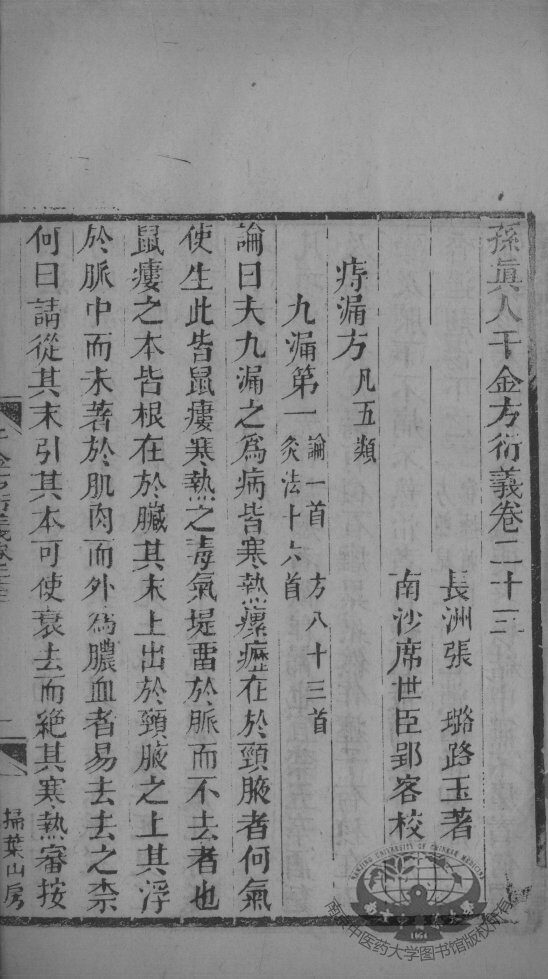 孫眞人千金方衍義卷二十三
長洲張　璐路玉著
南沙席世臣郢客校
痔漏方凡五類
九漏第一論一首　方八十三首
灸法十六首
論曰夫九漏之爲病皆寒熱瘰癧在於頸腋者何氣
使生此皆鼠瘻寒熱之毒氣堤畱於脈而不去者也
鼠瘻之本皆根在於臟其末上出於頸腋之上其浮
於脈中而未著於肌肉而外爲膿血者易去去之柰
何曰請從其末引其本可使衰去而絕其寒熱審按
掃葉山房
南京中医药大学图书馆版权所有
NANJING UNIVERSITY OF CHINESE MEDICINE
1954